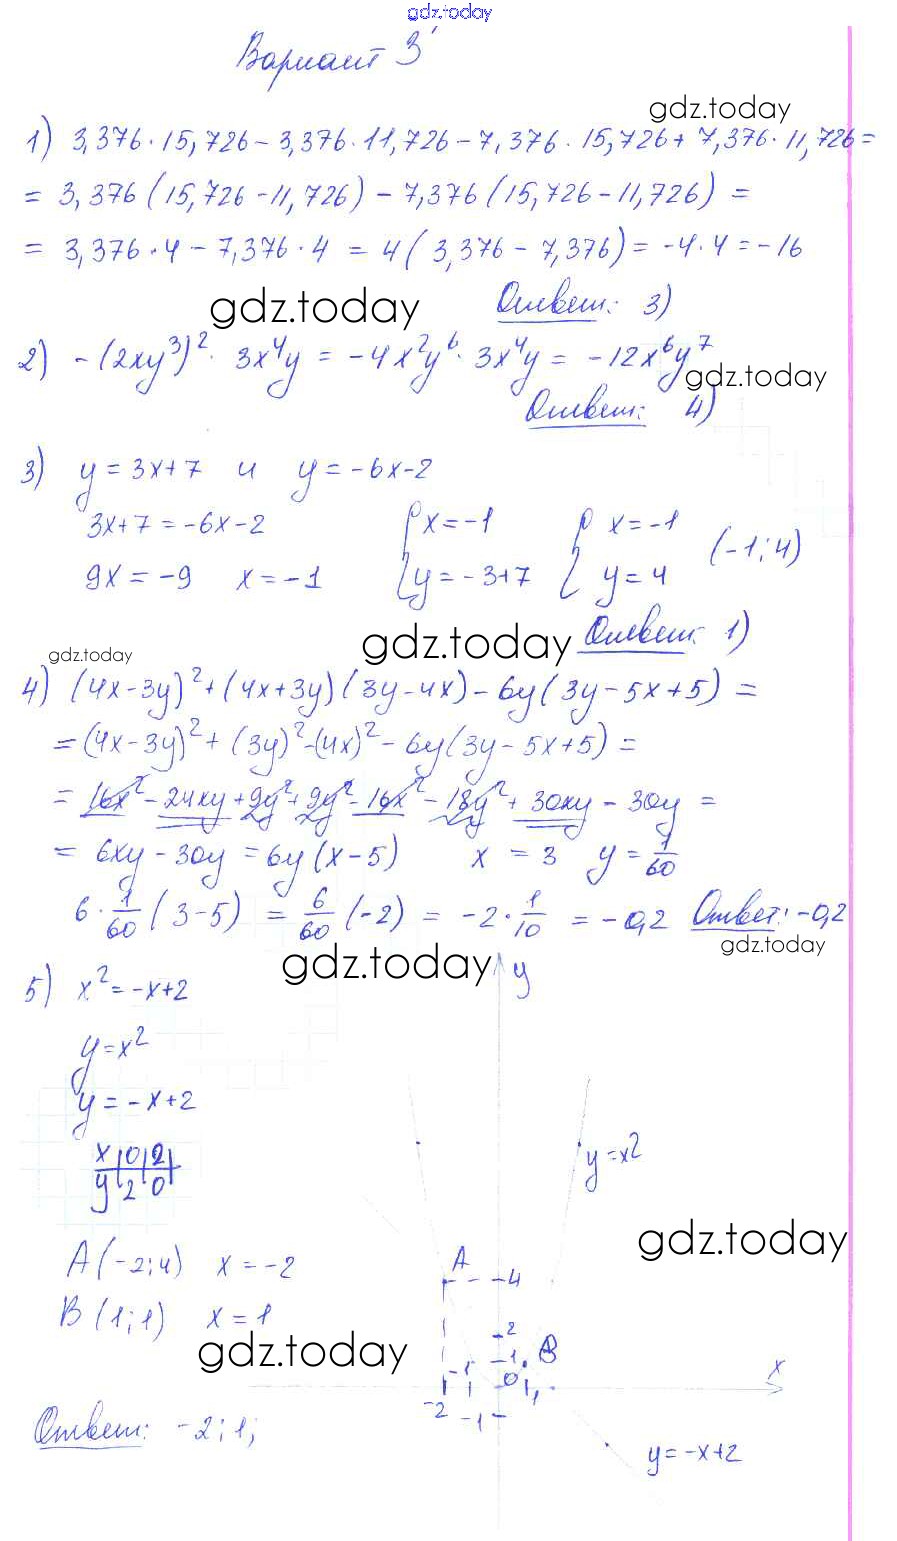 gdz.today
Вариант 3
gdz.today
1) 3,376·15,726 – 3,376·11,726 – 7,376·15,726 + 7,376·11,726 =
= 3,376(15,726 – 11,726) – 7,376(15,726 – 11,726) =
= 3,376·4 – 7,376·4 = 4(3,376 – 7,376) = –4·4 = –16
gdz.today Ответ: 3)
2) –(2xy³)²· 3x⁴y = –4x²y⁶· 3x⁴y = –12x⁶y⁷
gdz.today
Ответ: 4)
3) y = 3x+7 и y = –6x–2
3x+7 = –6x–2 { x = –1 { x = –1 (–1; 4)
9x = –9 x = –1 y = –3+7 y = 4
gdz.today Ответ: 1)
gdz.today
4) (4x–3y)² + (4x+3y)(3y–4x) – 6y(3y–5x+5) =
= (4x–3y)² + (3y)² – (4x)² – 6y(3y–5x+5) =
= 16x² – 24xy + 9y² + 9y² – 16x² – 18y² + 30xy – 30y =
= 6xy – 30y = 6y(x–5) x = 3 y = 1/60
6·1/60(3–5) = 6/60(–2) = –2·1/10 = –0,2 Ответ: –0,2
gdz.today
gdz.today
5) x² = –x+2 y
y = x²
y = –x+2
x 0 2
y 2 0
y = x²
gdz.today
A(–2; 4) x = –2
A 4
B(1; 1) x = 1
gdz.today
2
–1 1 B
0 1 x
–2 –1
Ответ: –2; 1;
y = –x+2